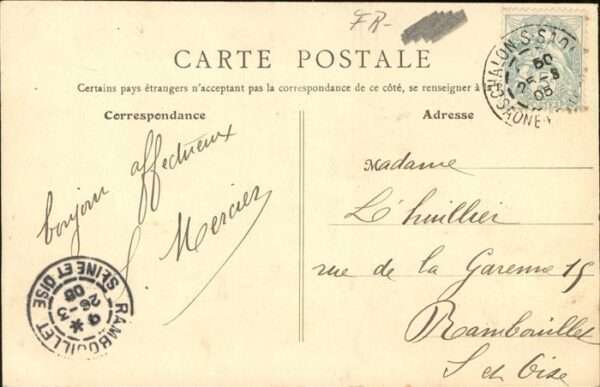 FR-
CARTE POSTALE
Certains pays étrangers n'acceptant pas la correspondance de ce côté, se renseigner à
Correspondance
Adresse
bonjour affectueux
S. Mercier
Madame
L'huillier
rue de la Garenne 15
Rambouillet
S et Oise
CHALON-S-SAÔ
50
25-3
05
RAMBOUILLET
9 *
26-3
05
SEINE ET OISE